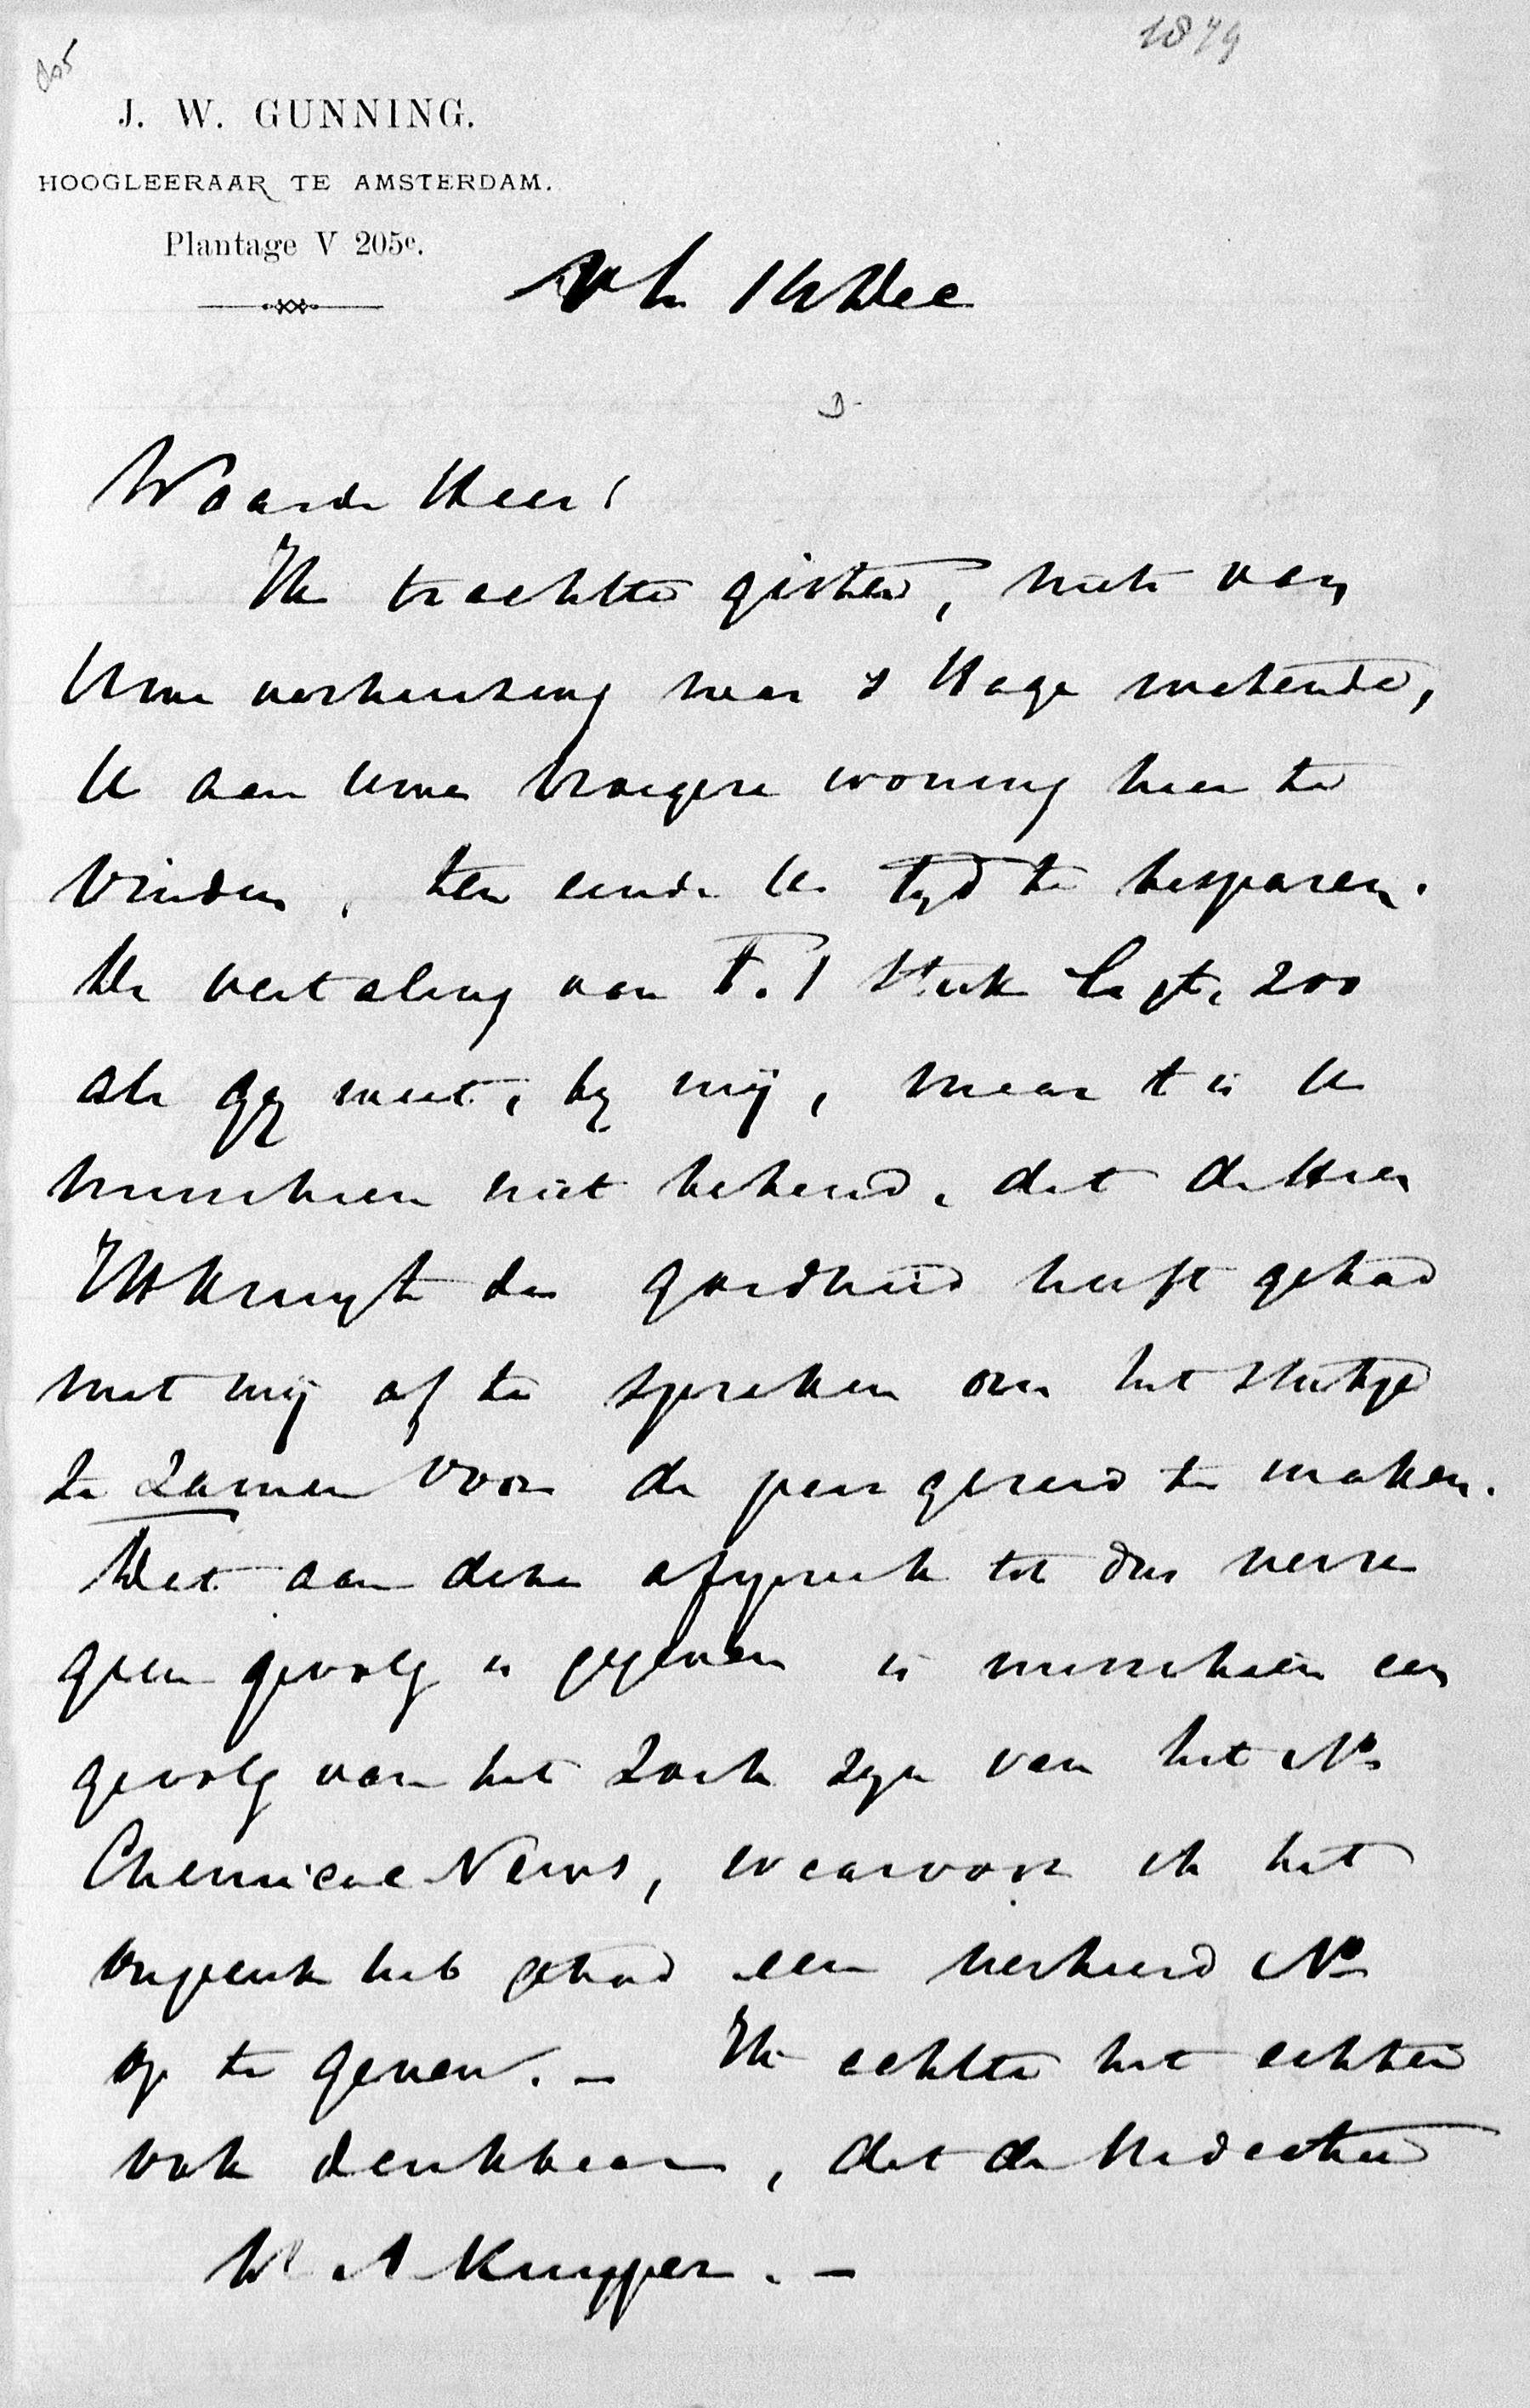 1879
J. W. GUNNING.
HOOGLEERAAR TE AMSTERDAM.
Plantage V 205e.
14 Dec
Waarde Heer!
Ik trachtte gisteren, niets van
Uwe verhuizing naar 's Hage wetende,
U aan Uwe vroegere woning hier te
vinden, ten einde U tijd te besparen.
De vertaling van stuk ligt, zoo
als gij weet, bij mij, maar 't is U
misschien niet bekend, dat de Heer
de goedheid heeft gehad
met mij af te spreken om het stukje
te zamen voor de pers gereed te maken.
Dat aan deze afspraak tot dus verre
geen gevolg is gegeven is misschien een
gevolg van het zoek zijn van het No
Chemical News, waarvoor ik het
ongeluk heb gehad een verkeerd No
op te geven. _ Ik achtte het echter
ook denkbaar, dat de Redactie
Dr A Kuyper. _